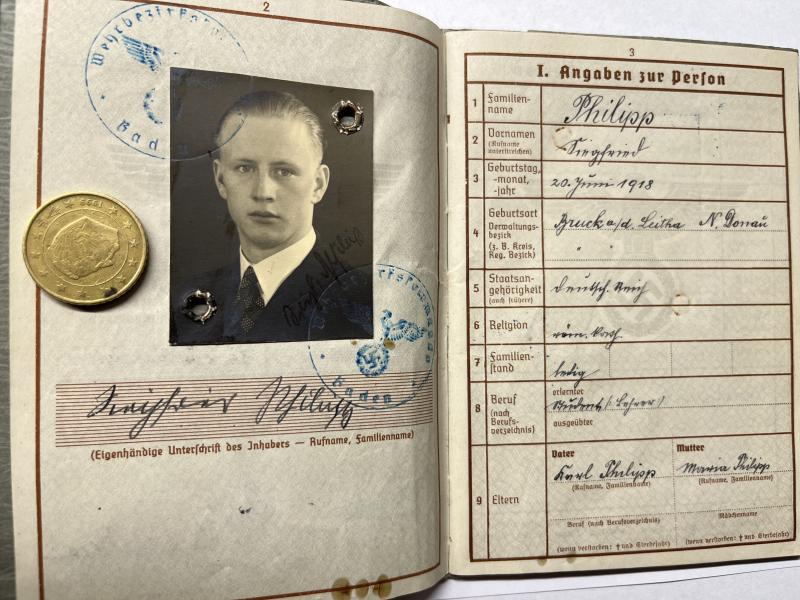 2
Wehrbezirks
Baden
Baden
Siegfried Philipp
(Eigenhändige Unterschrift des Inhabers — Rufname, Familienname)
1999
3
I. Angaben zur Person
1 Familien-
name
Philipp
2 Vornamen
(Rufname
unterstreichen)
Siegfried
3 Geburtstag,
-monat,
-jahr
20. Juni 1918
4 Geburtsort
Verwaltungs-
bezirk
(z. B. Kreis,
Reg. Bezirk)
Bruck a/d. Leitha N. Donau
" "
5 Staatsan-
gehörigkeit
(auch frühere)
Deutsch. Reich
6 Religion
röm. kath
7 Familien-
stand
ledig
8 Beruf
(nach
Berufs-
verzeichnis)
erlernter
Student (Lehrer)
ausgeübter
9 Eltern
Vater
Karl Philipp
(Rufname, Familienname)
Beruf (nach Berufsverzeichnis)
(wenn verstorben: † und Sterbejahr)
Mutter
Maria Philipp
(Rufname, Familienname)
Mädchenname
(wenn verstorben: † und Sterbejahr)